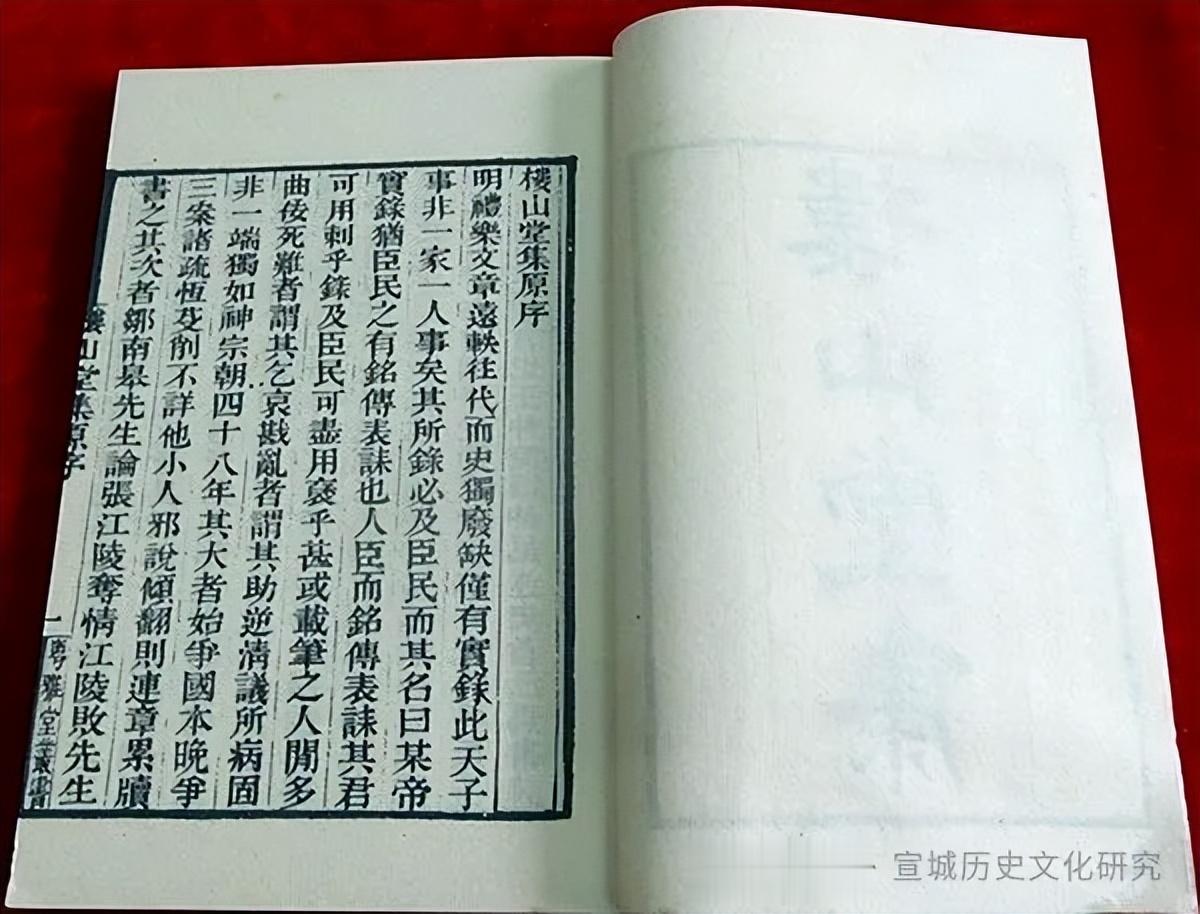 樓山堂集原序
明禮樂文章遠軼往代而史獨廢缺僅有實錄此天子
事非一家一人事矣其所錄必及臣民而其名曰某帝
實錄猶臣民之有銘傳表誄也人臣而銘傳表誄其君
可用刺乎錄及臣民可盡用襃乎甚或載筆之人閒多
曲佞死難者謂其乞哀戡亂者謂其助逆淸議所病固
非一端獨如神宗朝四十八年其大者始爭國本晚爭
三案諸疏恆芟削不詳他小人邪說傾翻則連章累牘
書之其次者鄒南皋先生論張江陵奪情江陵敗先生
樓山堂集原序
一
粵雅堂叢書
宣城历史文化研究